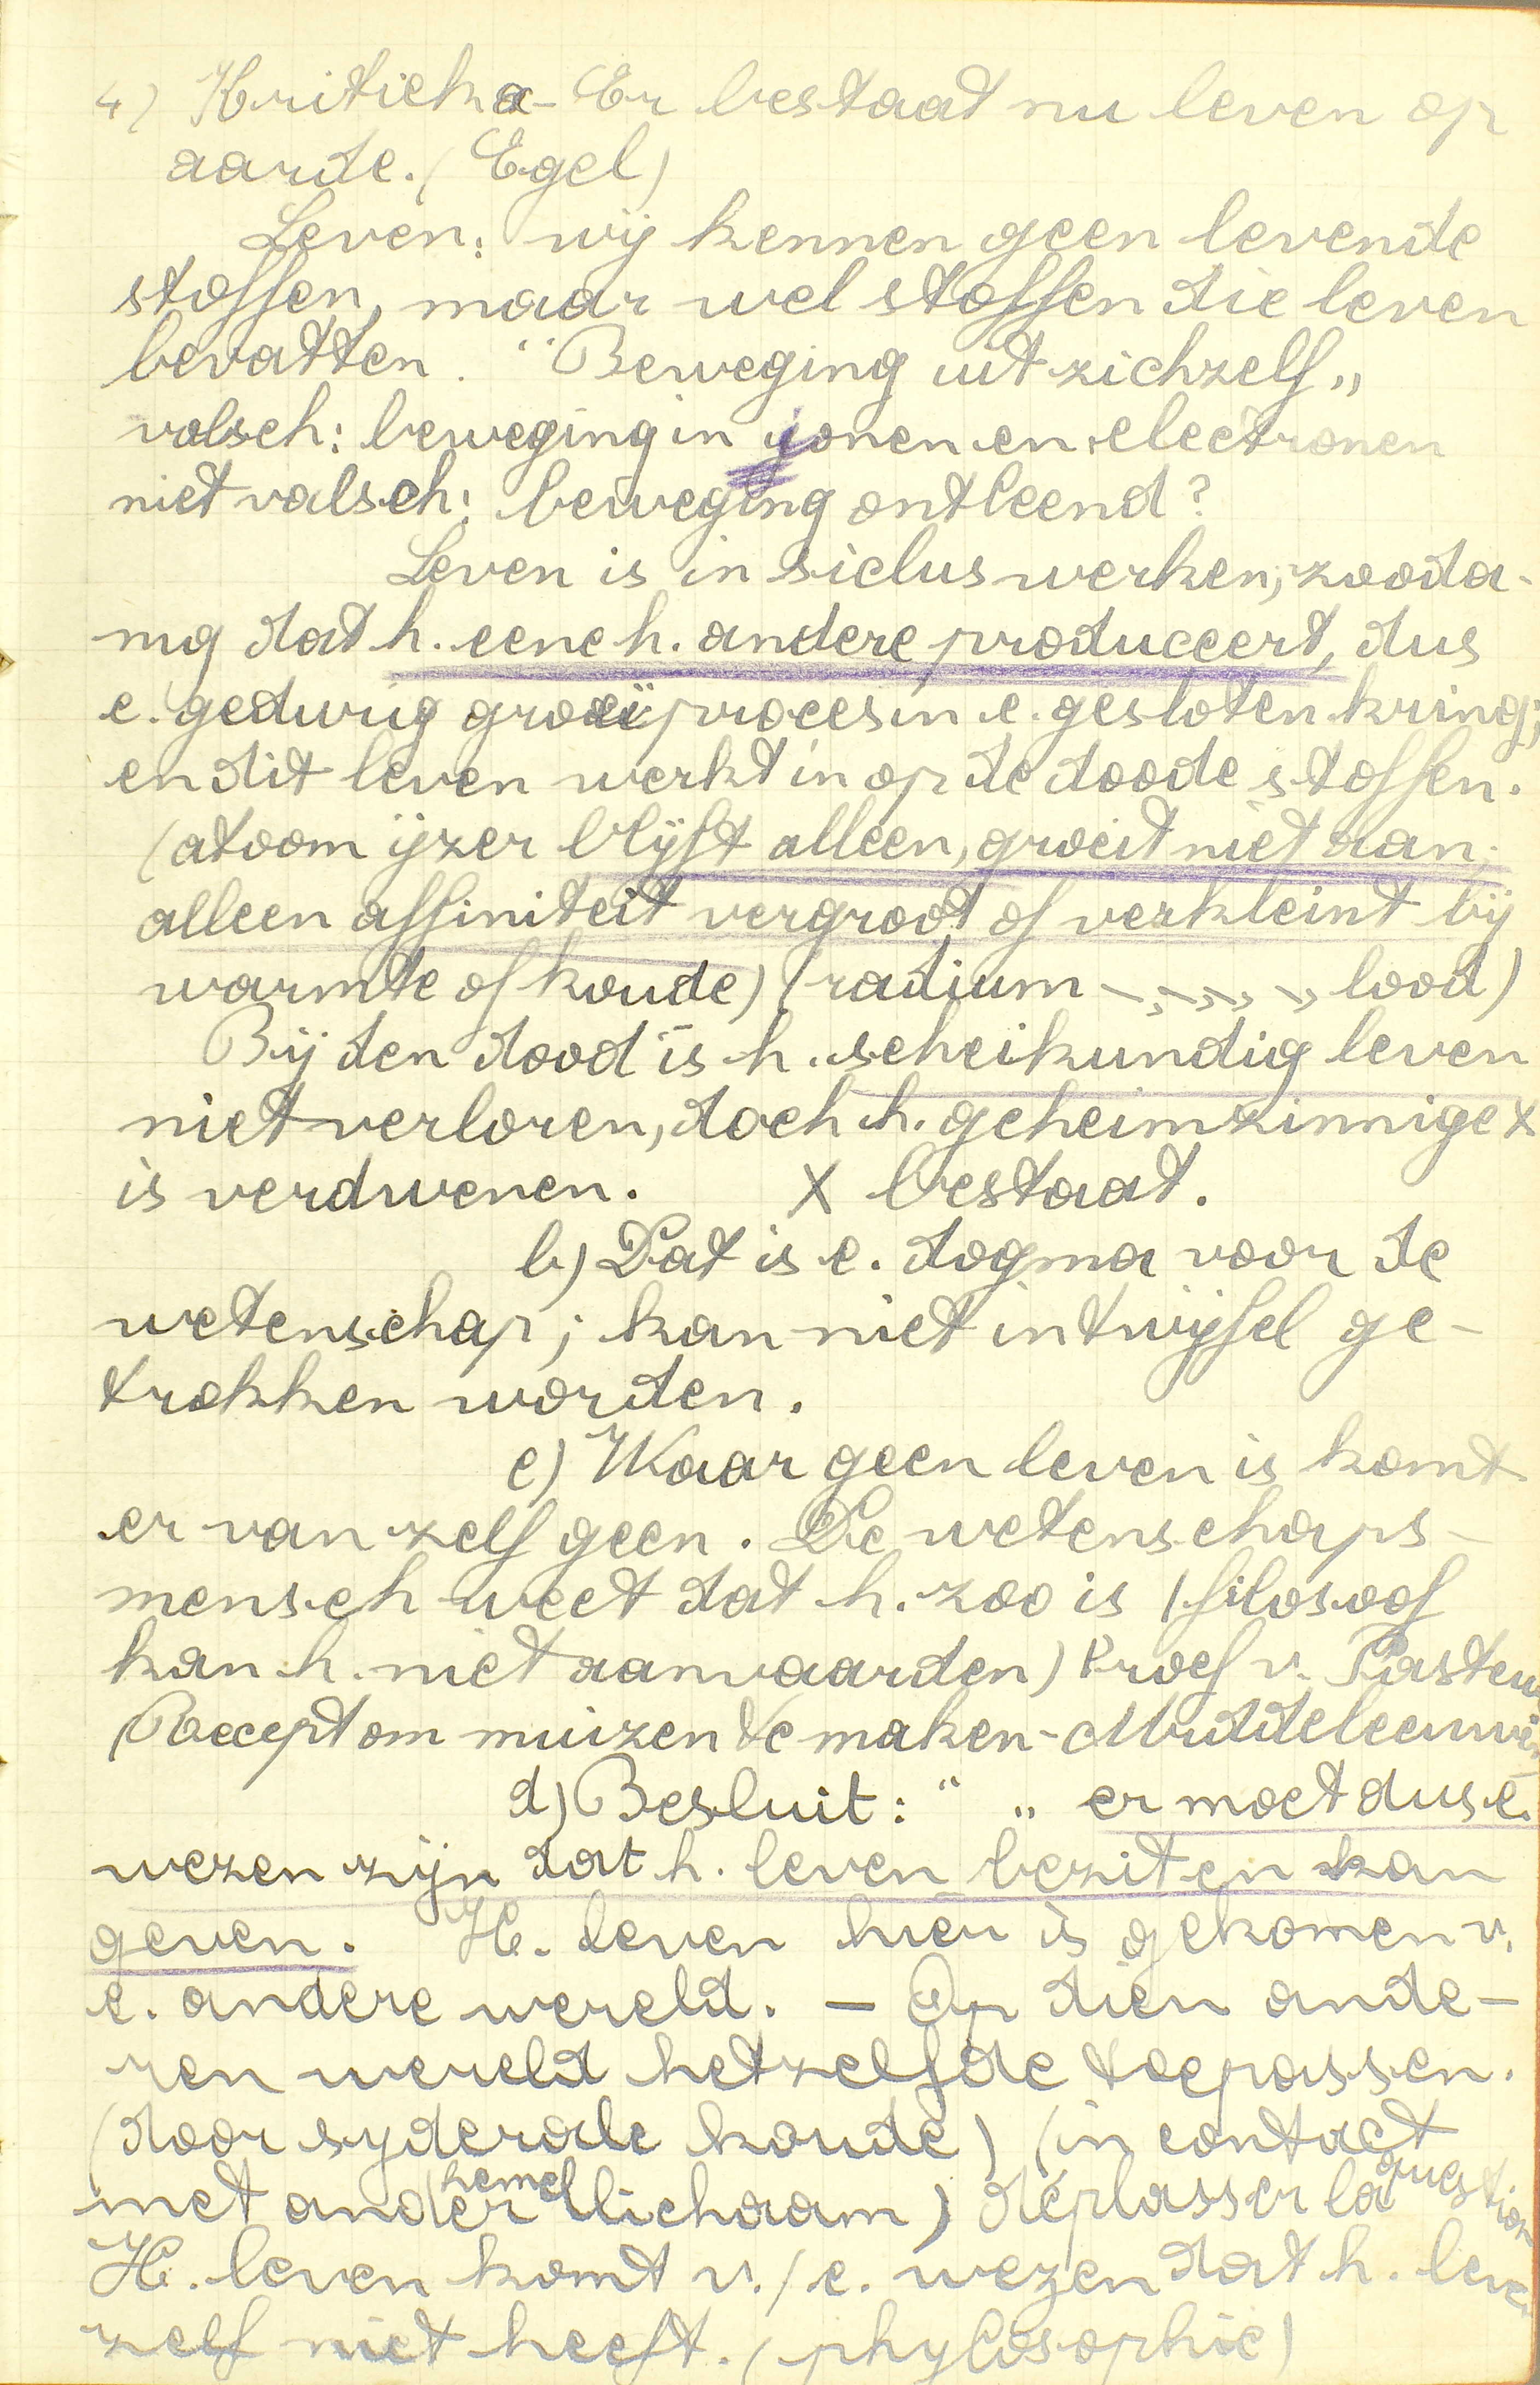 4) Kritiek a- Er bestaat nu leven op
aarde. (Egel)
Leven: wij kennen geen levende
stoffen, maar wel stoffen die leven
bevatten. "Beweging uit zichzelf"
valsch: beweging in jonen en electronen
niet valsch: beweging ontleend?
Leven is in siclus werken, zooda-
nig dat h. eene h. andere produceert, dus
e. gedurig groeiproces in e. gesloten kring;
en dit leven werkt in op de doode stoffen.
(atoom ijzer blijft alleen, groeit niet aan;
alleen affiniteit vergroot of verkleint bij
warmte of koude) (radium lood)
Bij den dood is h. scheikundig leven
niet verloren, doch h. geheimzinnige x
is verdwenen. X bestaat.
b) Dat is e. dogma voor de
wetenschap; kan niet in twijfel ge-
trokken worden.
c) Waar geen leven is komt
er van zelf geen. De wetenschaps-
mensch weet dat h. zoo is (filosoof
kan h. niet aanvaarden) Proef v. Pasteur
(Recept om muizen te maken -
d) Besluit: " " er moet dus e.
wezen zijn dat h. leven bezit en kan
geven. H. leven hier is gekomen v.
e. andere wereld. - Op dien ande-
ren wereld hetzelfde toepassen.
(door syderale koude) (in contact
met ander hemellichaam) déplasser la question
H. leven komt v. / e. wezen dat h. leven
zelf niet heeft. (phylosophie)